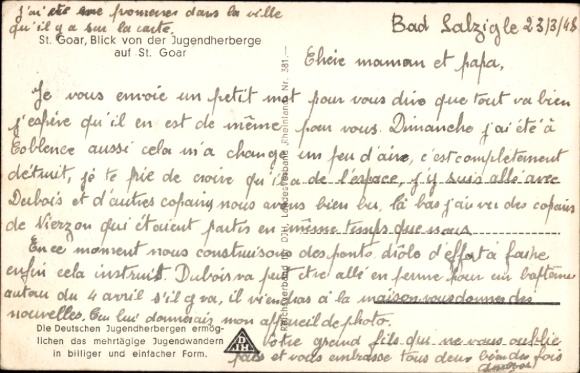 j'ai été me promener dans la ville
qu'il y a sur la carte.
St. Goar, Blick von der Jugendherberge
auf St. Goar
Bad Salzigle 23/3/48
Chère maman et papa,
Je vous envoie un petit mot pour vous dire que tout va bien
j'espère qu'il en est de même pour vous. Dimanche j'ai été à
Coblence aussi cela m'a changé un peu d'aire, c'est complètement
détruit, je te prie de croire qu'il y a de l'espace, j'y suis allé avec
Dubois et d'autres copains nous avons bien bu, là bas j'ai vu des copains
de Vierzon qui étaient partis en même temps que nous
En ce moment nous construisons des ponts drôle d'effort à faire
enfin cela instruit. Dubois va peut être allé en perme pour un baptême
autour du 4 avril s'il y va, il viendras à la maison vous donner des
nouvelles. Ceu lui donnerais mon appareil de photo.
Votre grand fils qui ne vous oublie
pas et vous embrasse tous deux bien des fois
Reichsverband für D.J.H. Landesverband Rheinland Nr. 381.—
Die Deutschen Jugendherbergen ermög-
lichen das mehrtägige Jugendwandern
in billiger und einfacher Form.
DJH